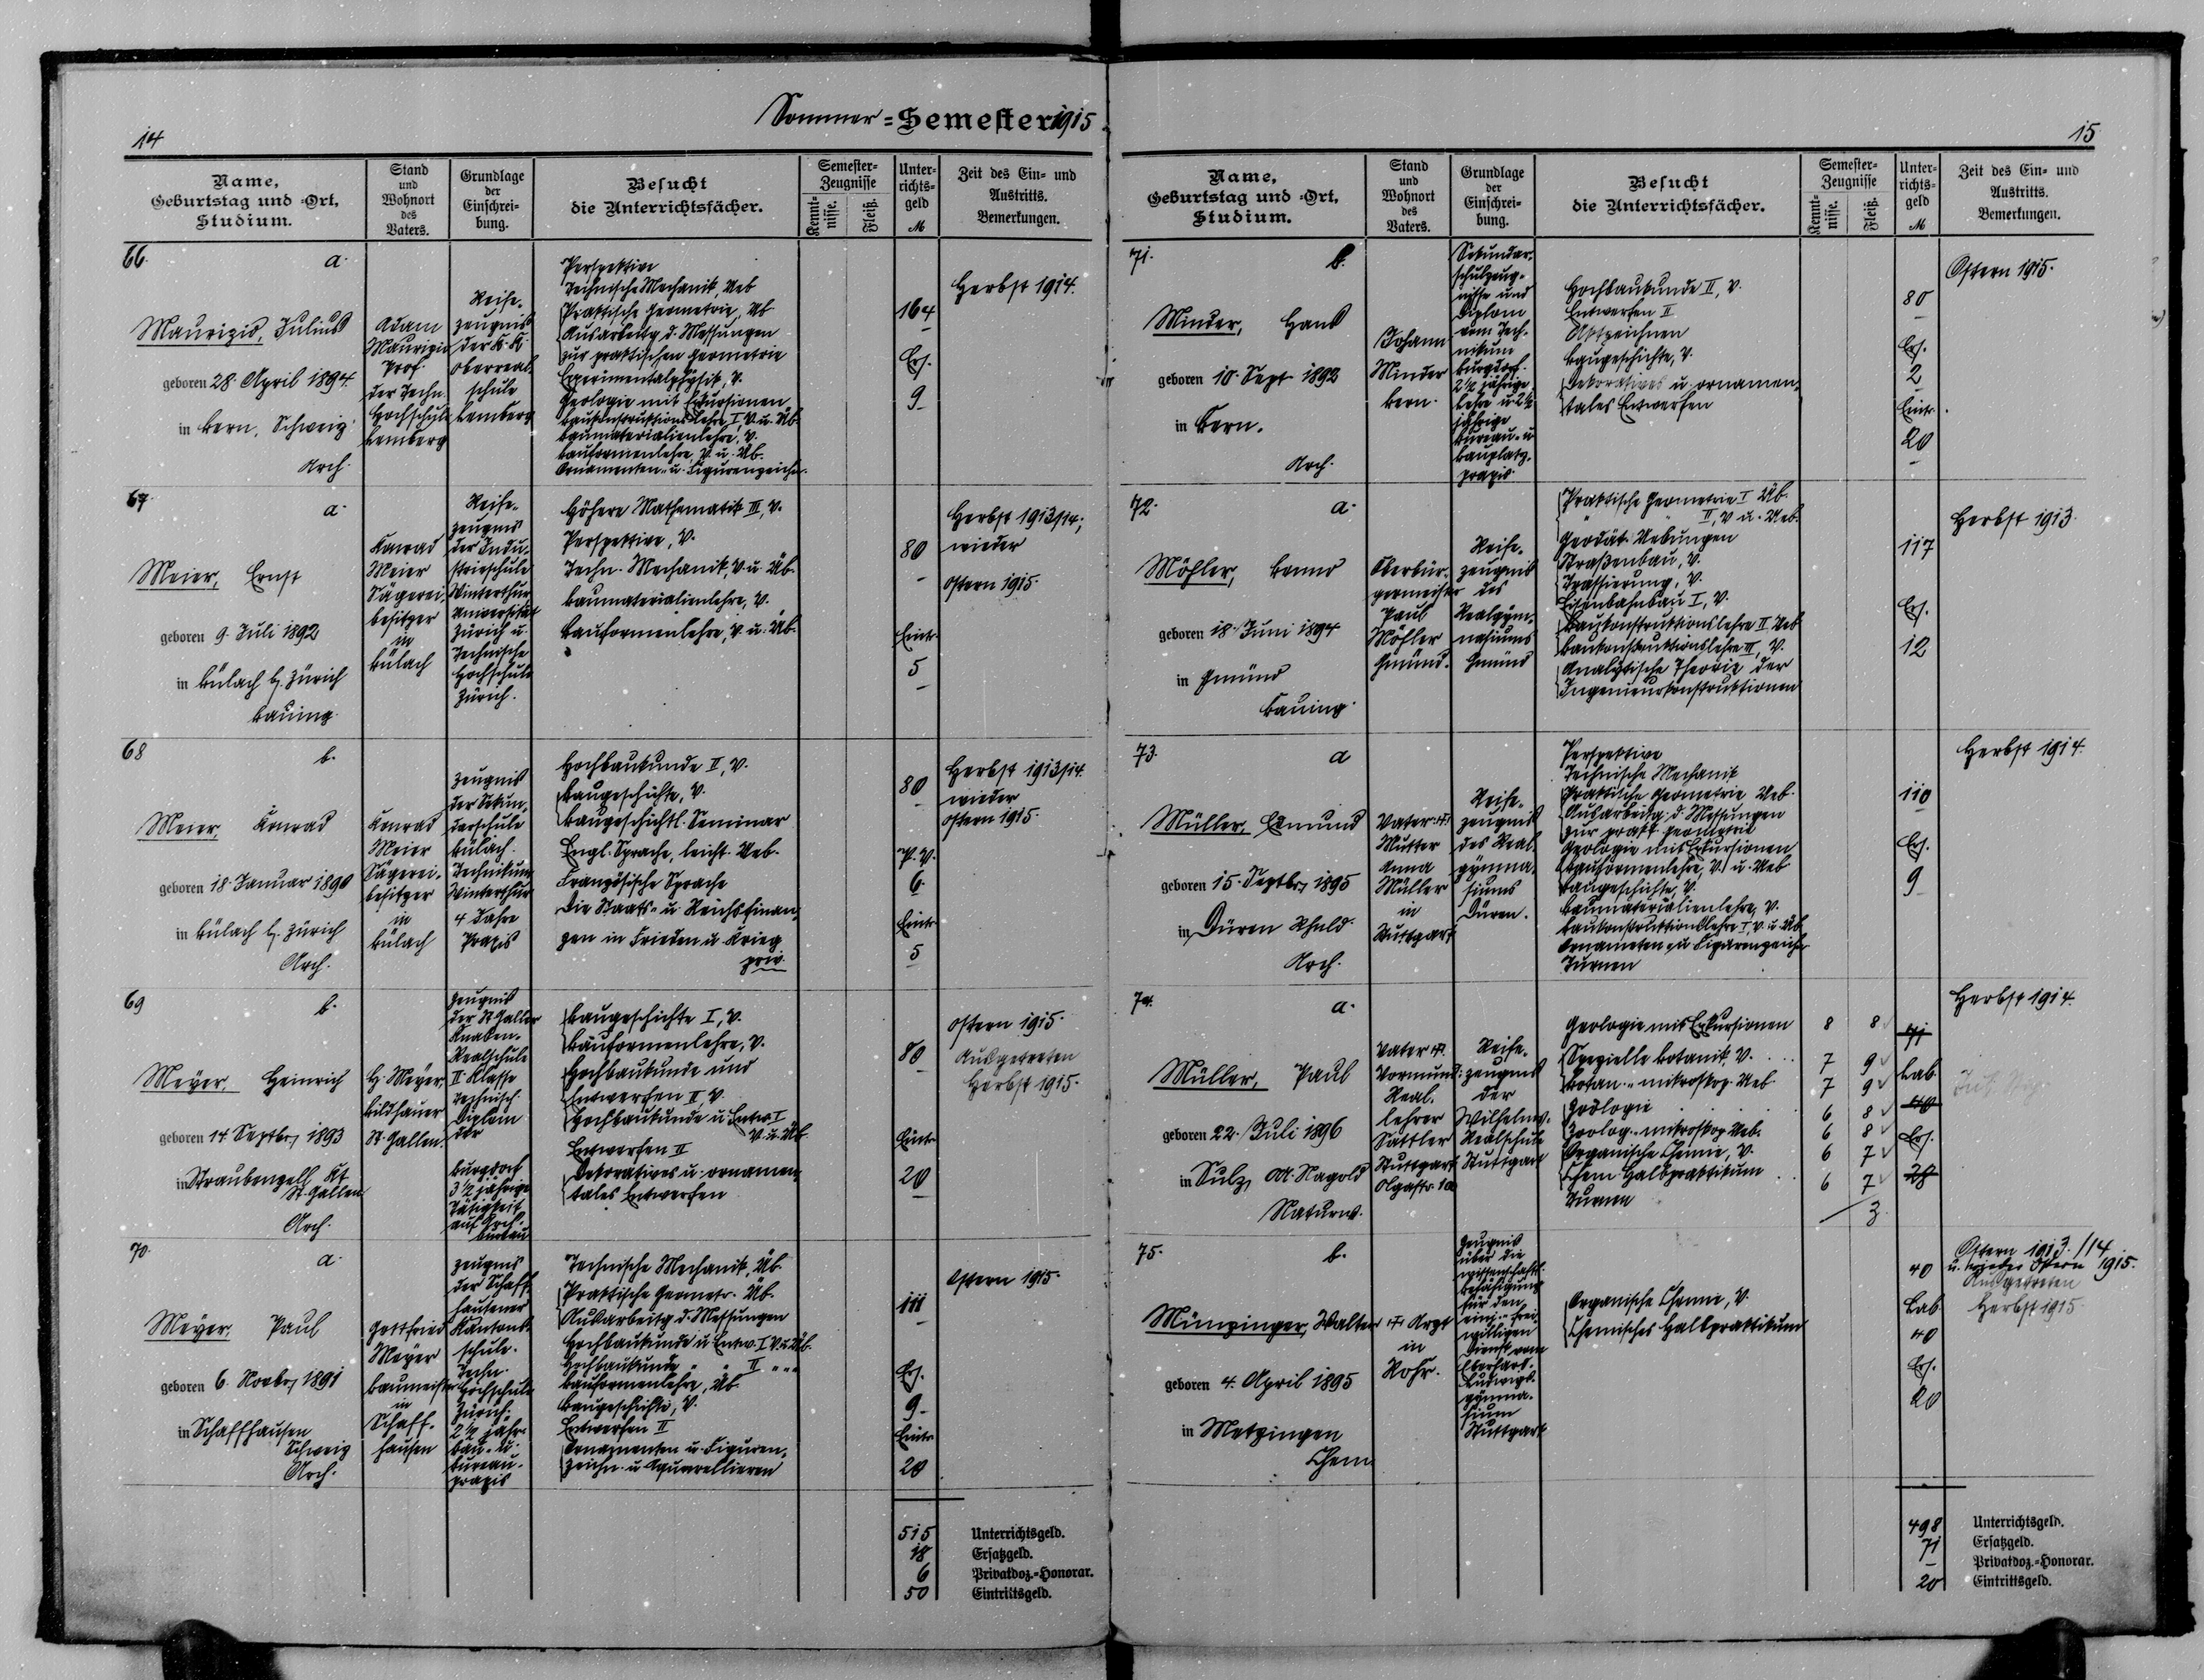 Sommer=Semester 1915.
14
Name,
Geburtstag und =Ort,
Studium.
Stand
und
Wohnort
des
Vaters.
Grundlage
der
Einschrei=
bung.
Besucht
die Unterrichtsfächer.
Semester=
Zeugnisse
Kennt=
nisse.
Fleiß.
Unter=
richts=
geld
M
Zeit des Ein= und
Austritts.
Bemerkungen.
66.
a.
Maurizio, Julius
geboren 28. April 1894.
in Bern, Schweiz.
Arch.
Adam
Maurizio
Prof.
der Techn.
Hochschule
Lemberg
Reife-
zeugnis
der K. K.
Oberreal-
schule
Lemberg
Perspektive
Technische Mechanik, Ueb
Praktische Geometrie, Üb
Ausarbeitg d. Messungen
zur praktischen Geometrie
Experimentalphysik, V.
Geologie mit Exkursionen
Baukonstruktionslehre I, V. u. Üb.
Baumaterialienlehre, V.
Bauformenlehre, V. u. Üb.
Ornamenten- u. Figurenzeichn.
164
Ers.
9
Herbst 1914.
67.
a.
Meier, Ernst
geboren 9. Juli 1892
in Bülach b/. Zürich
Bauing.
Konrad
Meier
Sägerei-
besitzer
in
Bülach
Reife-
zeugnis
der Indu-
strieschule
Winterthur
Universität
Zürich u.
Technische
Hochschule
Zürich.
Höhere Mathematik III, V.
Perspektive, V.
Techn. Mechanik, V. u. Üb.
Baumaterialienlehre, V.
Bauformenlehre, V. u. Üb.
80
Eintr.
5
Herbst 1913/14;
wieder
Ostern 1915.
68
b.
Meier, Konrad
geboren 18. Januar 1890
in Bülach b/. Zürich
Arch.
Konrad
Meier
Sägerei-
besitzer
in
Bülach
Zeugnis
der Sekun-
darschule
Bülach.
Technikum
Winterthur
4 Jahre
Praxis
Hochbaukunde II, V.
Baugeschichte, V.
Baugeschichtl. Seminar
Engl. Sprache, leicht. Ueb.
Französische Sprache
Die Staats- u. Reichsfinan-
zen in Frieden u. Krieg
priv.
80
P. V.
6.
Eintr
5
Herbst 1913/14.
wieder
Ostern 1915.
69
b.
Meyer, Heinrich
geboren 14. Septbr. 1893
in Straubenzell Kt
St. Gallen
Arch.
H. Meyer,
Bildhauer
St. Gallen.
Zeugnis
der St Galler
Knaben-
Realschule
II. Klasse
Technisch.
Diplom
der
Burgdorf
3 1/2 jährige
Tätigkeit
auf Arch.
bureau
Baugeschichte I, V.
Bauformenlehre, V.
Hochbaukunde und
Entwerfen II, V.
Hochbaukunde u. Entw. I
V. u. Üb.
Entwerfen II
Dekoratives u. ornamen-
tales Entwerfen
80
Eintr
20
Ostern 1915.
Ausgetreten
Herbst 1915.
70.
a.
Meyer, Paul
geboren 6. Novbr. 1891
in Schaffhausen
Schweiz
Arch.
Gottfried
Meyer
Baumeister
in
Schaff-
hausen
Zeugnis
der Schaff-
hausener
Kantons-
schule.
Techn.
Hochschule
Zürich.
2 1/2 jähr.
Bau- u.
Bureau-
praxis
Technische Mechanik, Üb.
Praktische Geometr. Üb.
Ausarbeitg d. Messungen
Hochbaukunde u. Entw. I V. u. Üb.
Hochbaukunde " " II " " "
Bauformenlehre, Üb.
Baugeschichte, V.
Entwerfen II
Ornamenten u. Figuren-
zeichn. u. Aquarellieren
111
Ers.
9
Eintr
20
Ostern 1915.
515 Unterrichtsgeld.
18 Ersatzgeld.
6 Privatdoz.=Honorar.
50 Eintrittsgeld.
15
Name,
Geburtstag und =Ort,
Studium.
Stand
und
Wohnort
des
Vaters.
Grundlage
der
Einschrei=
bung.
Besucht
die Unterrichtsfächer.
Semester=
Zeugnisse
Kennt=
nisse.
Fleiß.
Unter=
richts=
geld
M
Zeit des Ein= und
Austritts.
Bemerkungen.
71.
b.
Minder, Hans
geboren 10. Sept 1892
in Bern.
Arch.
Johann
Minder
Bern.
Sekundar-
schulzeug-
nisse und
Diplom
vom Tech-
nikum
Burgdorf.
2 1/2 jährige
Lehre u. 2 1/2
jährige
Bureau- u.
Bauplatz-
praxis.
Hochbaukunde II, V.
Entwerfen II
Aktzeichnen
Baugeschichte, V.
Dekoratives u. ornamen-
tales Entwerfen
80
Ers.
2
Eintr.
20
Ostern 1915.
72.
a.
Möhler, Benno
geboren 18. Juni 1894
in Gmünd
Bauing.
Oberbür-
germeister
Paul
Möhler
Gmünd.
Reife-
zeugnis
des
Realgym-
nasiums
Gmünd
Praktische Geometrie I Üb.
" II, V. u. Ueb.
Geodät. Uebungen
Straßenbau, V.
Trassierung, V.
Eisenbahnbau I, V.
Baukonstruktionslehre II Ueb
Baukonstruktionslehre III, V.
Analytische Theorie der
Ingenieurkonstruktionen
117
Ers.
12
Herbst 1913.
73.
a
Müller, Edmund
geboren 15. Septbr. 1895
in Düren Rhnld.
Arch.
Vater †
Mutter
Anna
Müller
in
Stuttgart
Reife-
zeugnis
des Real-
gymna-
siums
Düren.
Perspektive
Technische Mechanik
Praktische Geometrie Ueb.
Ausarbeitg. d. Messungen
zur prakt. Geometrie
Geologie mit Exkursionen
Bauformenlehre, V. u. Ueb
Baugeschichte, V.
Baumaterialienlehre, V.
Baukonstruktionslehre I, V. u. Üb
Ornamenten- u. Figurenzeichn
Turnen
110
Ers.
9
Herbst 1914.
74.
a.
Müller, Paul
geboren 22. Juli 1896
in Sulz, OA. Nagold
Naturw.
Vater †.
Vormund:
Real-
lehrer
Sattler
Stuttgart
Olgastr. 100
Reife-
zeugnis
der
Wilhelms-
Realschule
Stuttgart
Geologie mit Exkursionen 8 8
Spezielle Botanik, V. 7 9
Botan.-mikroskop. Ueb. 7 9
Zoologie 6 8
Zoolog.-mikroskop. Ueb. 6 8
Organische Chemie, V. 6 7
Chem. Halbpraktikum 6 7
Turnen / 3.
71
Lab.
40
Ers.
28
Herbst 1914.
75.
b.
Münzinger, Walter
geboren 4. April 1895
in Metzingen
Chem
† Arzt
in
Rohr.
Zeugnis
über die
wissenschaftl.
Befähigung
für den
einj.-frei-
willigen
Dienst vom
Eberhard-
Ludwigs-
gymna-
sium
Stuttgart
Organische Chemie, V.
Chemisches Halbpraktikum
40
Lab.
40
Ers.
20
Ostern 1913./14
u. wieder Ostern 1915.
Ausgetreten
Herbst 1915.
498 Unterrichtsgeld.
71 Ersatzgeld.
– Privatdoz.=Honorar.
20 Eintrittsgeld.